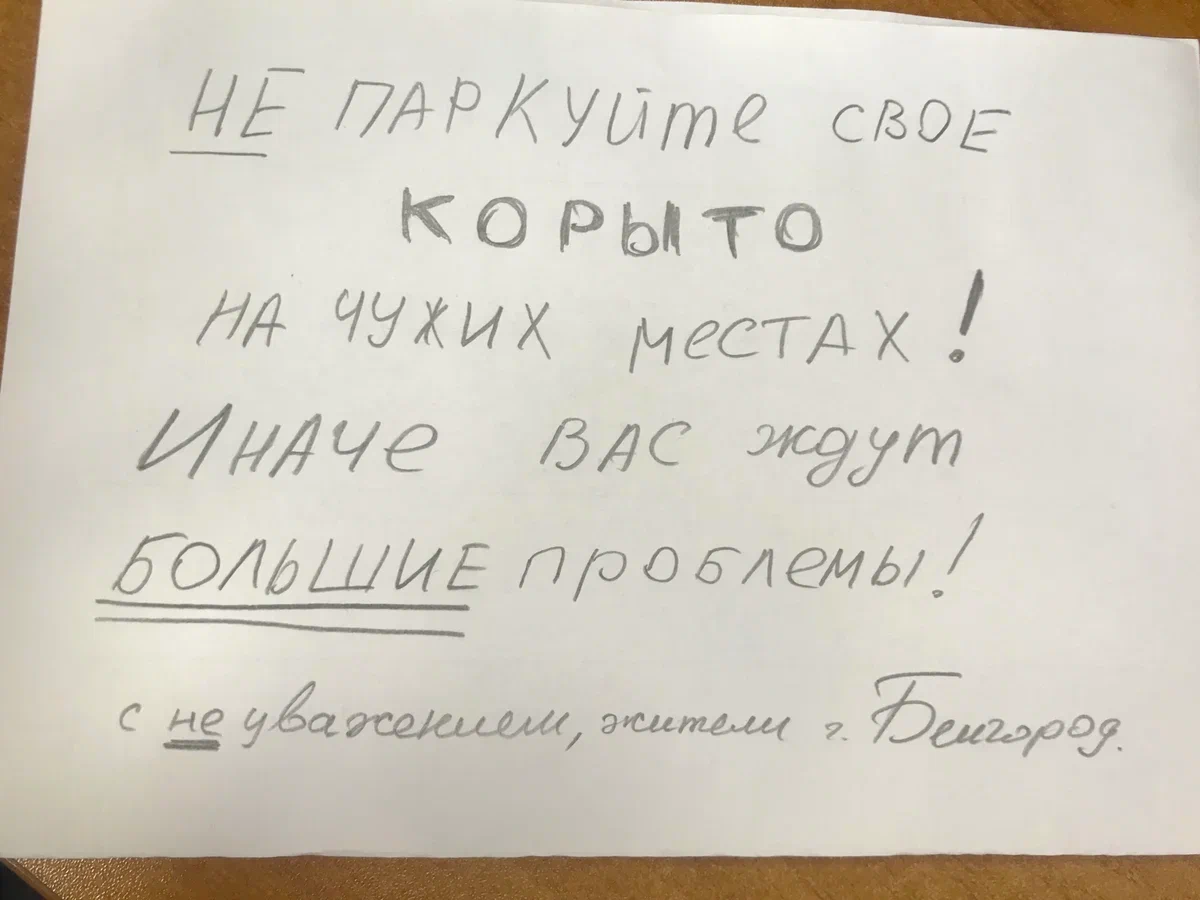 НЕ ПАРКУЙте СВОЕ
КОРЫТО
НА ЧУЖИХ МЕСТАХ!
ИНАЧе ВАС ждут
БОЛЬШИЕ проблемы!
с не уважением, жители г. Белгород.